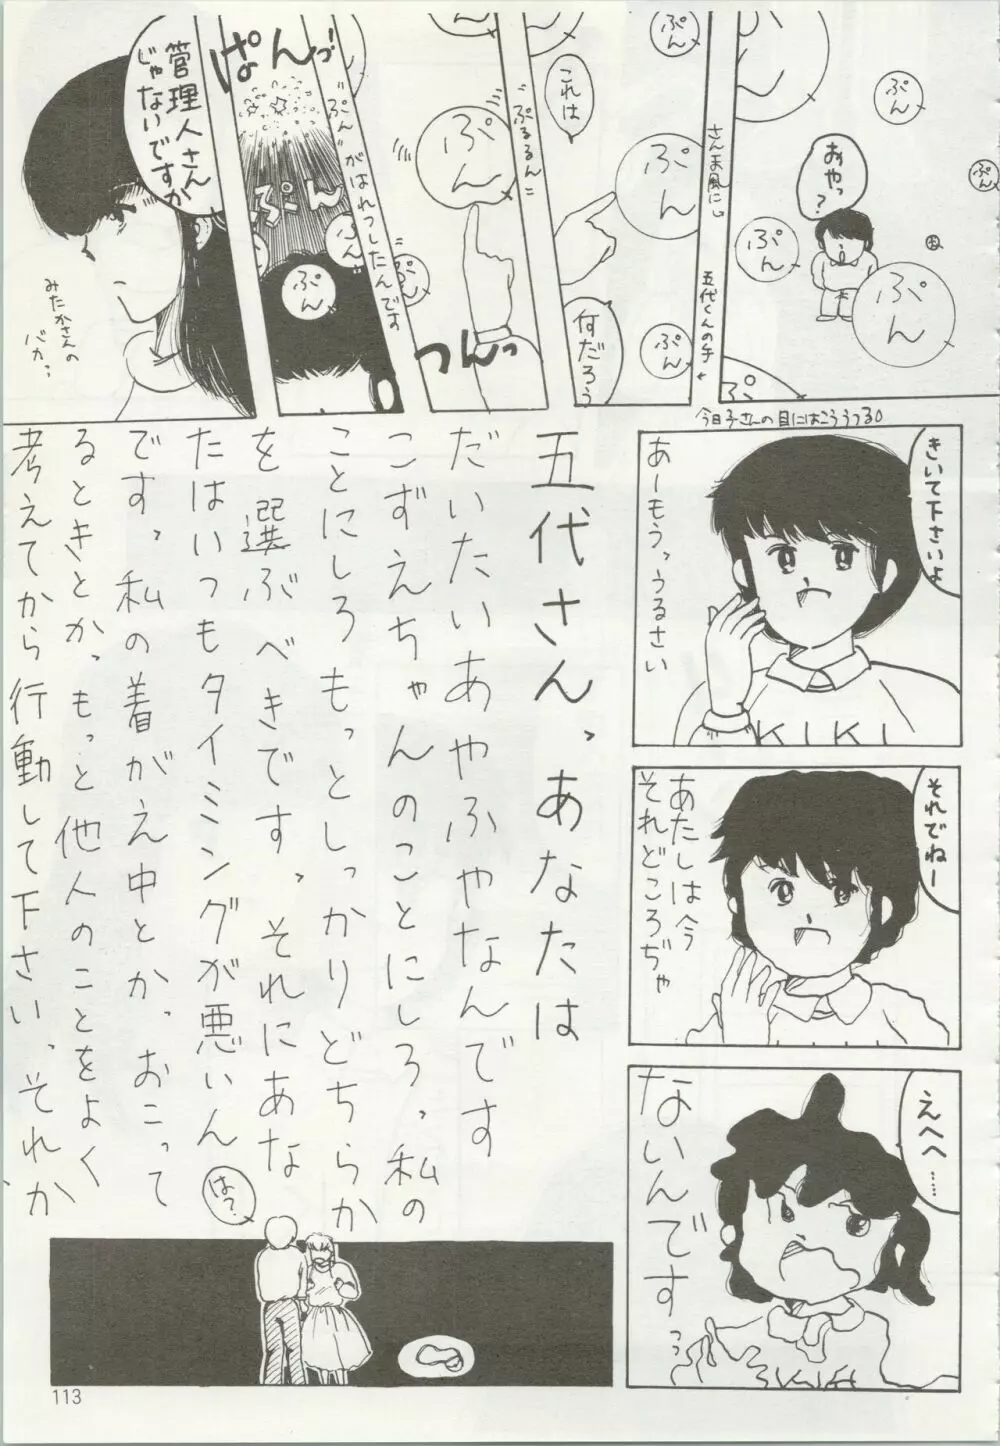 ぷん
ぷん
ぷん
おやっ?
ぷん
ぷん
ぷん
さんま風に
五代くんの手
ぷん
ぷん
これは
何だろう
"ぷるるん"
ぷん
つんっ
ぷん
"ぷん"がはれつしたんです
ぱんっ!
ぷん
ぷん
ぷん
管理人さん
じゃないですか
みたかさんの
バカっ
今日子さんの目にはこううつる。
きいて下さいよ
あーもうっうるさい
KIKI
それでねー
あたしは今
それどころぢゃ
えへへ……
ないんです
っ
五代さん、あなたは
だいたいあやふやなんです
こずえちゃんのことにしろ、私の
ことにしろ もっとしっかりどちらか
を選ぶべきです、それにあな
たはいつもタイミングが悪いん
です、私の着がえ中とか、おこって
るときとか、もっと他人のことをよく
考えてから行動して下さい、それか
は?
113